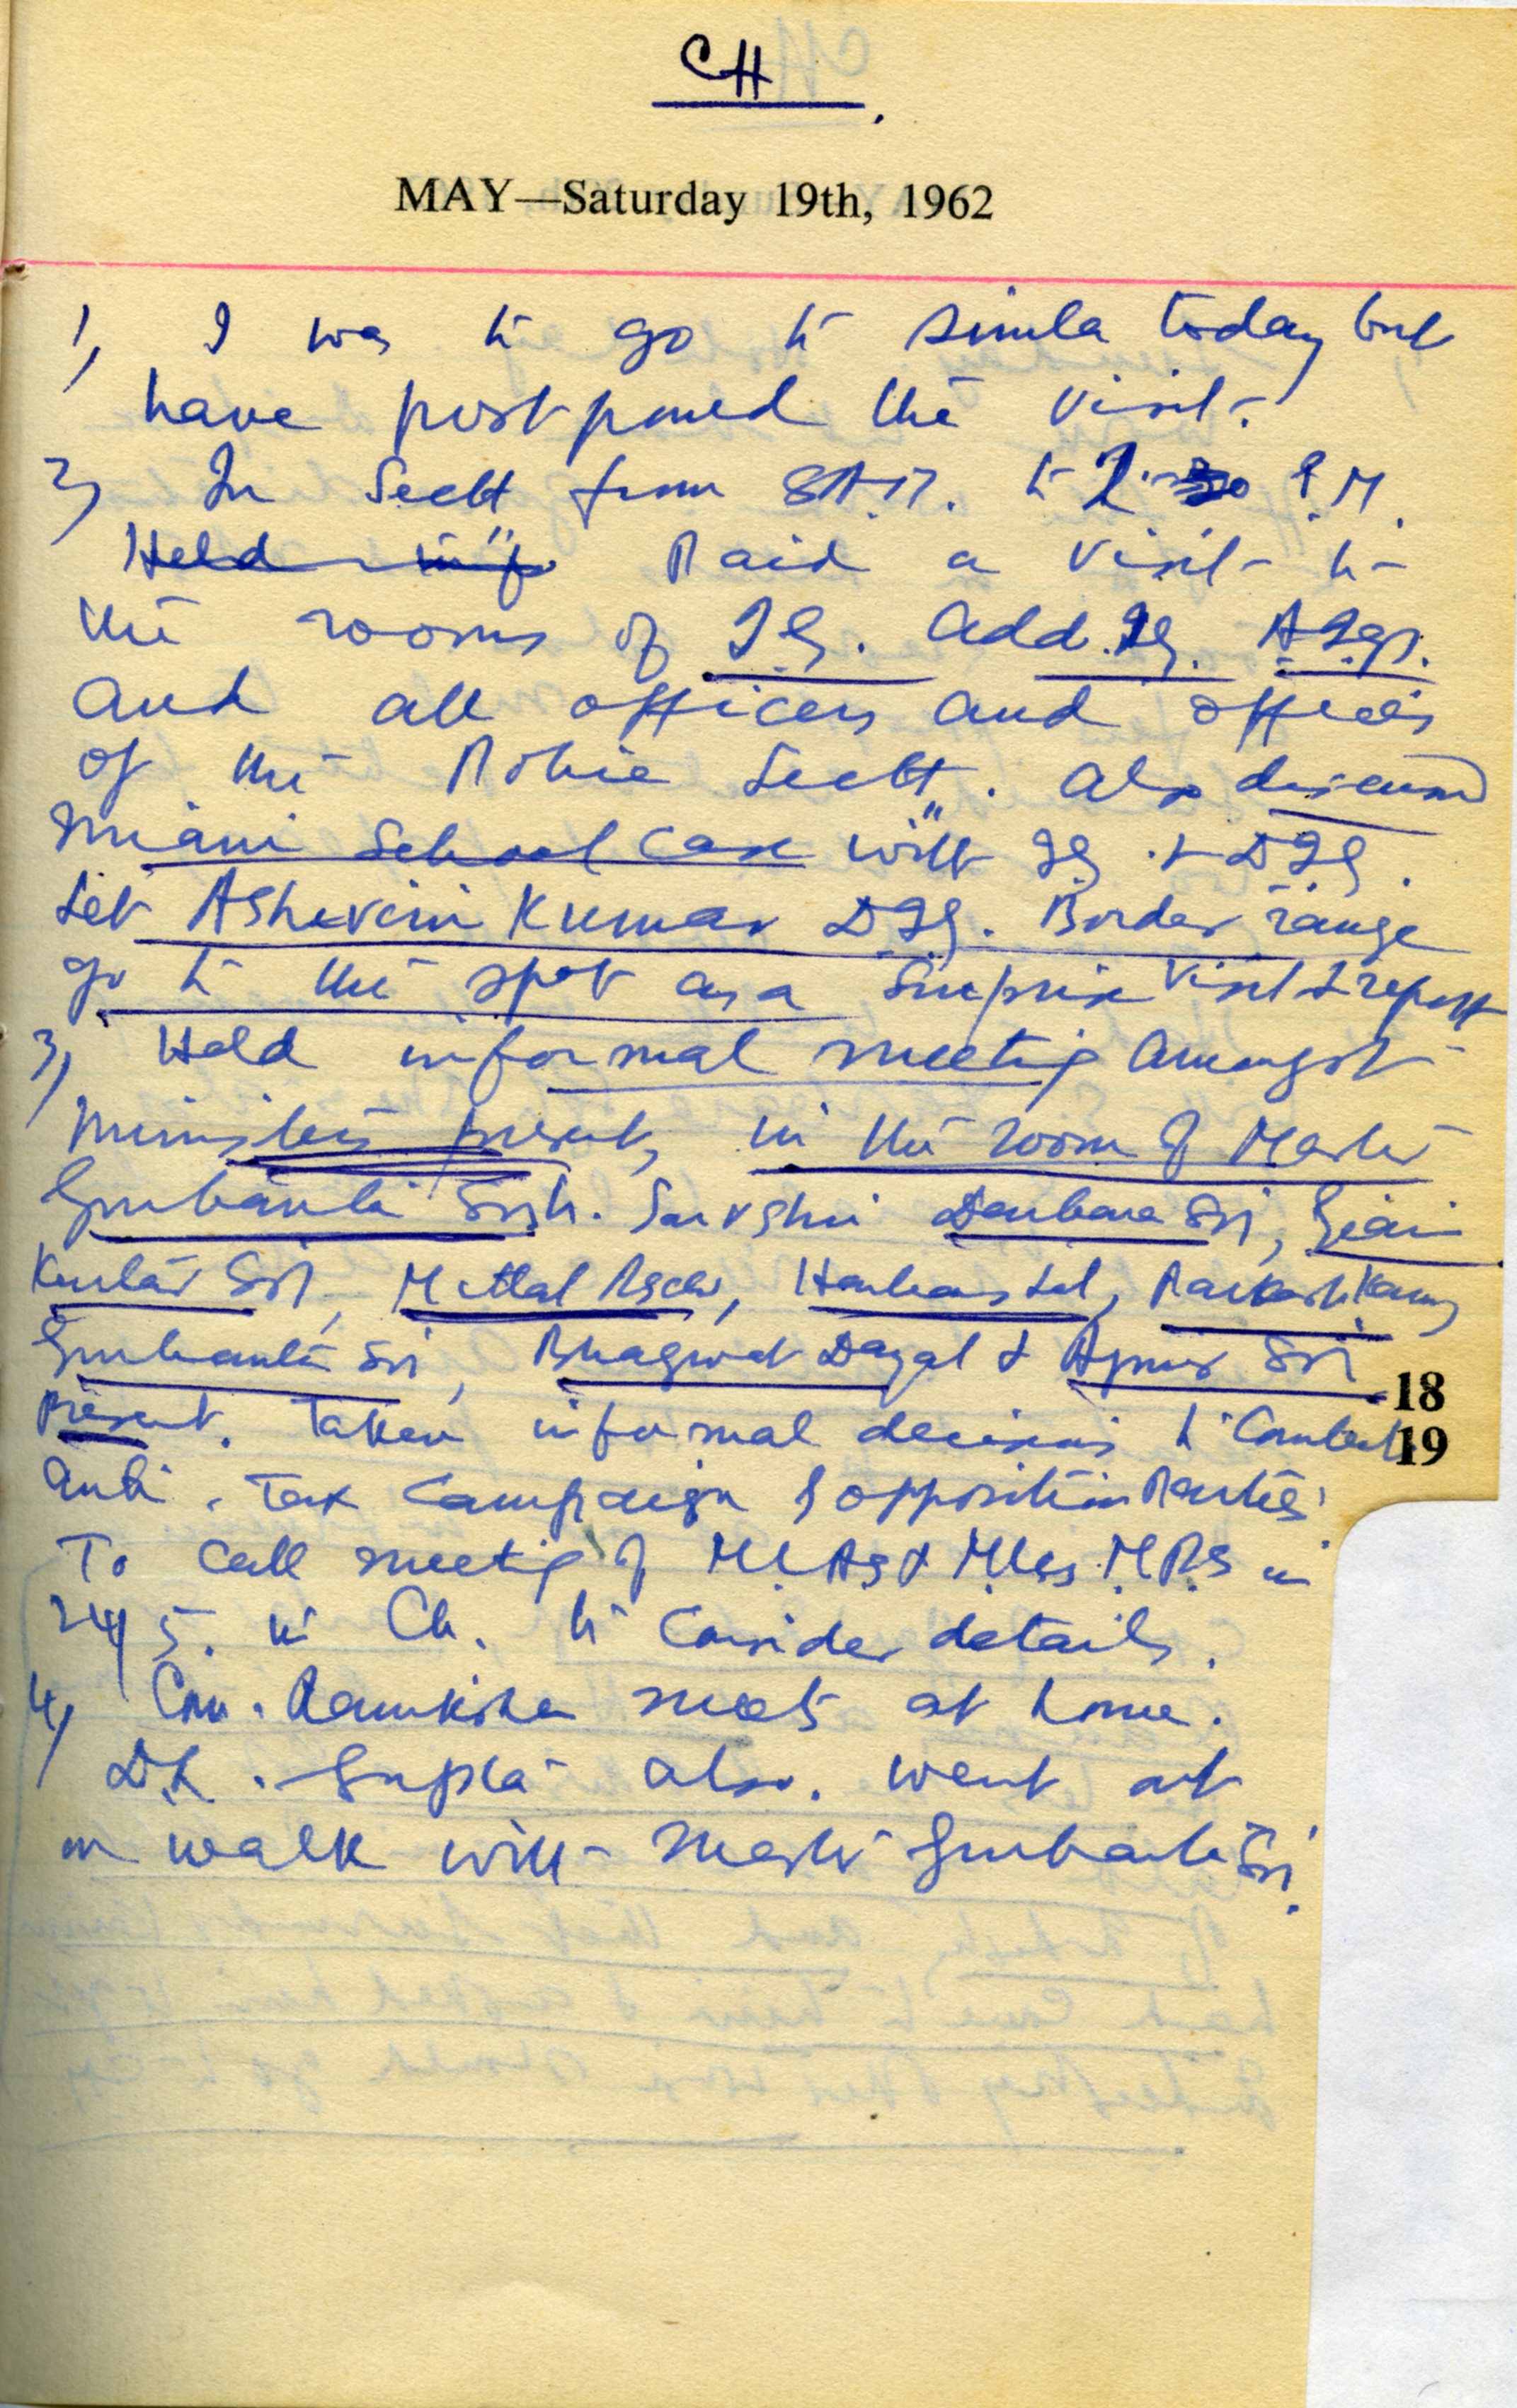 CH.
MAY—Saturday 19th, 1962
1) I was to go to Simla today but
have postponed the visit.
2) In Sectt from 8 A.M. to 2 P.M.
Held Paid a visit to
the rooms of IG. Add. IG. AIGs.
and all officers and offices
of the Police Sectt. Also discussed
Miani School case with IG & DIG.
Let Ashwini Kumar DIG. Border range
go to the spot as a surprise visit & report
3) Held informal meeting amongst
ministers present, in the room of Master
Gurbanta Singh. Sarvshri Darbara Sri, Giani
Kartar Sri, Harbans Lal,
Gurbanta Sri, Bhagwat Dayal & Ajmer Sri
present. Taken informal decisions to combat
18
19
anti-tax campaign of opposition Parties.
To call meeting of M.L.As & M.L.Cs M.Ps in
24/5. in Ch. to consider details.
4) Com. Ramkishan meets at home.
Gupta also. went out
on walk with Master Gurbanta Sri.